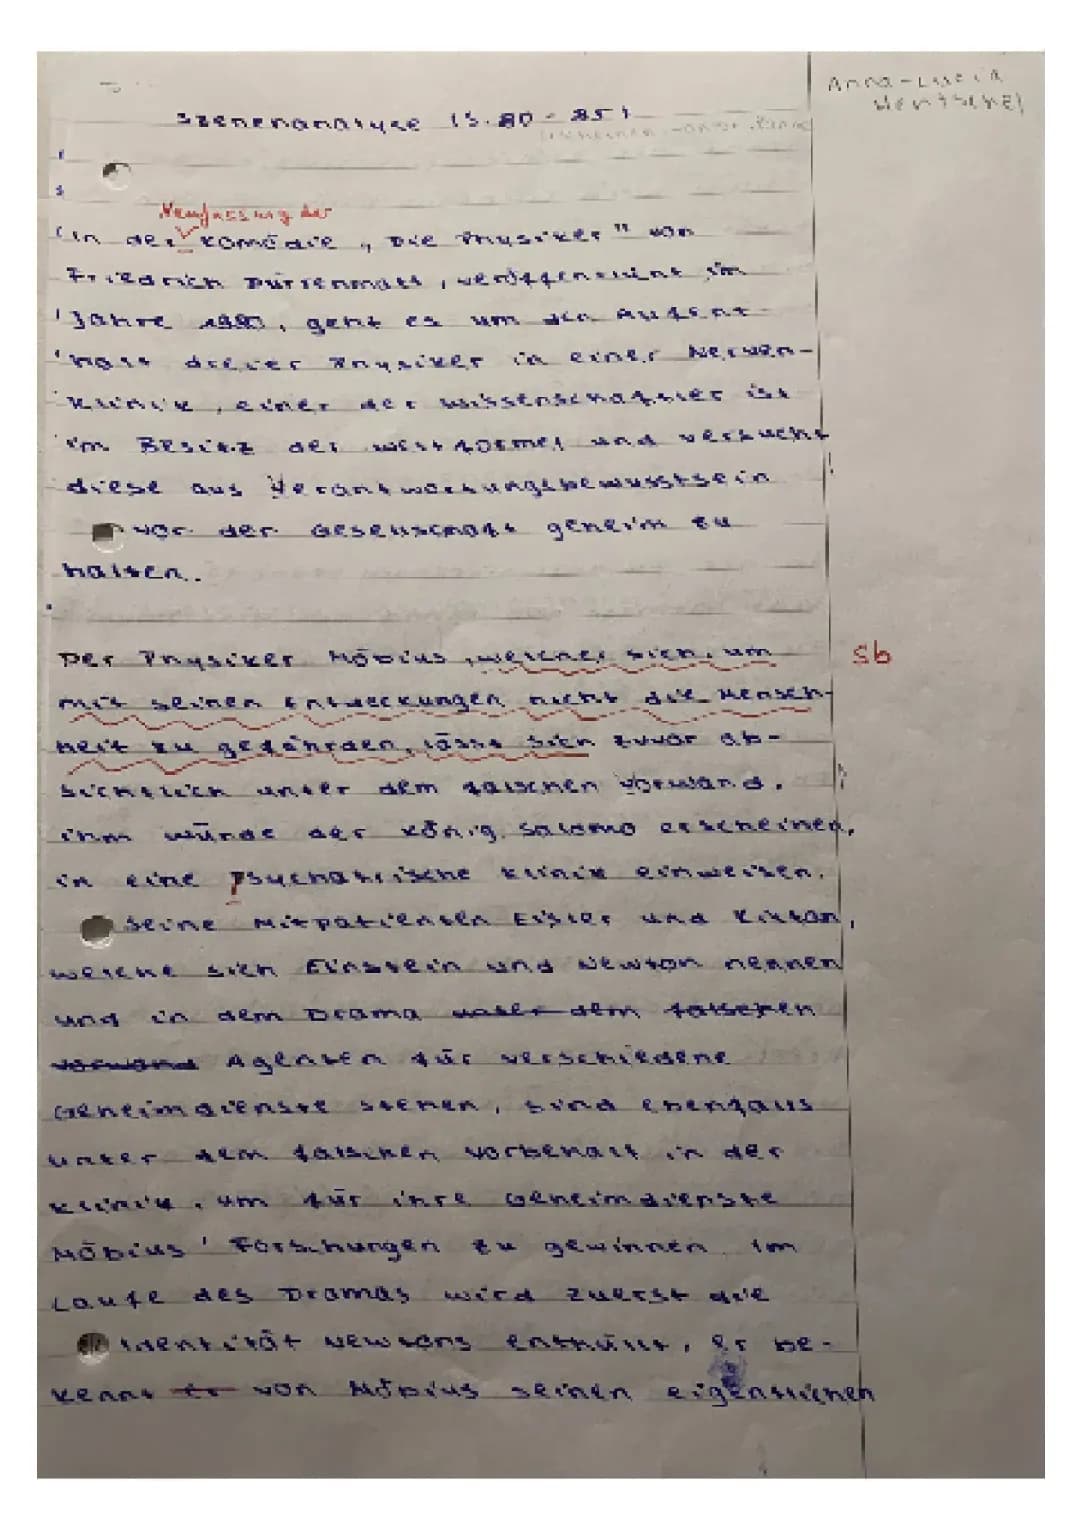 Anna-Lucia
Szenenanalyse (S. 80 - 85)
Neufassung der
In der Komödie „Die Physiker" von
Friedrich Dürrenmatt, veröffentlicht im
Jahre 1980, geht es um den Aufent-
halt dreier Physiker in einer Nerven-
klinik, einer der Wissenschaftler ist
im Besitz der Weltformel und versucht
diese aus Verantwortungsbewusstsein
vor der Gesellschaft geheim zu
halten.
Der Physiker Möbius, welcher sich, um
sb
mit seinen Entdeckungen nicht die Mensch-
heit zu gefährden, lässt sich zuvor ab-
sichtlich unter dem falschen Vorwand,
ihm würde der König Salomo erscheinen,
in eine Psychatrische Klinik einweisen.
Seine Mitpatienten Eisler und Kilton,
welche sich Einstein und Newton nennen
und in dem Drama unter dem falschen
Vorwand Agenten für verschiedene
Geheimdienste stehen, sind ebenfalls
unter dem falschen Vorbehalt in der
Klinik, um für ihre Geheimdienste
Möbius' Forschungen zu gewinnen. Im
Laufe des Dramas wird zuerst die
Identität Newtons enthüllt, er be-
kennt er von Möbius seinen eigentlichen